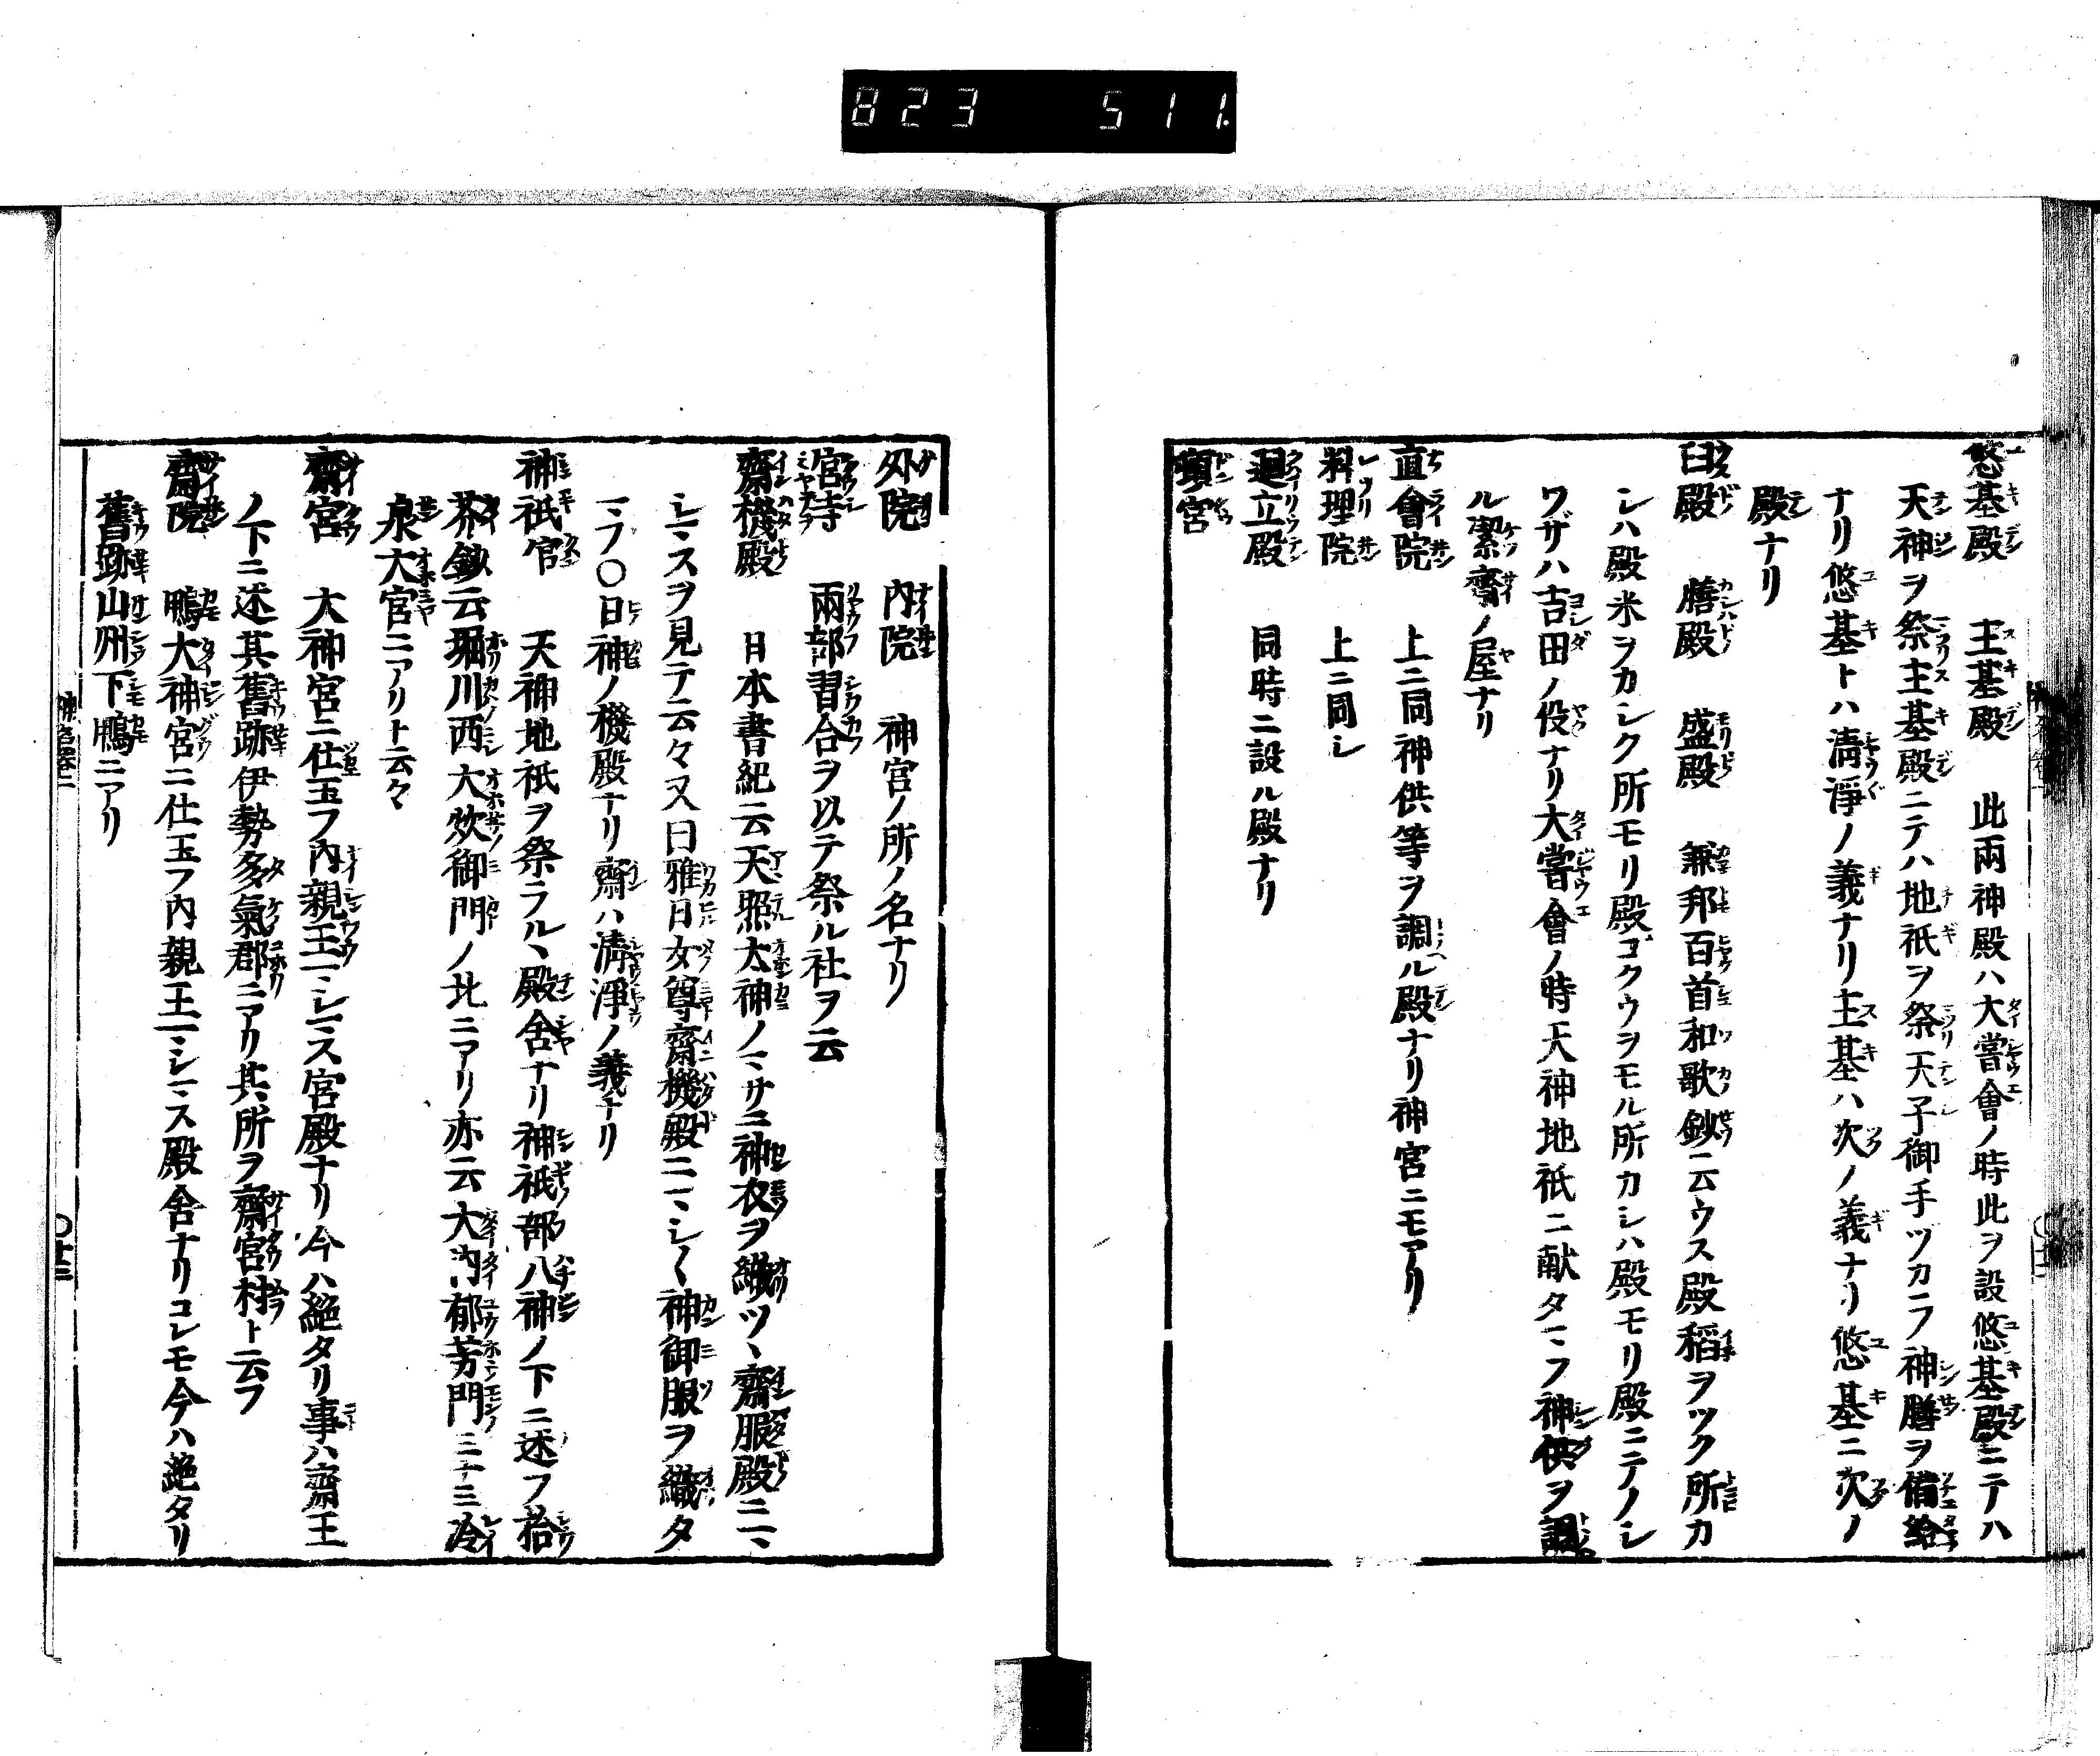 823 511.
悠基殿 主基殿 此兩神殿ハ大嘗會ノ時此ヲ設悠基殿ニテハ
天神ヲ祭主基殿ニテハ地祇ヲ祭天子御手ツカラ神膳ヲ備給
ナリ悠基トハ淸淨ノ義ナリ主基ハ次ノ義ナリ悠基ニ次ノ
殿ナリ
臼殿 膳殿 盛殿 兼邦百首和歌鈔云ウス殿稻ヲツク所カ
シハ殿米ヲカシク所モリ殿ゴクウヲモル所カシハ殿モリ殿ニテノシ
ワザハ吉田ノ役ナリ大嘗會ノ時天神地祇ニ献タマフ神供ヲ調
ル潔齋ノ屋ナリ
直會院 上ニ同神供等ヲ調ル殿ナリ神宮ニモアリ
料理院 上ニ同シ
廻立殿 同時ニ設ル殿ナリ
頓宮
外院 內院 神官ノ所ノ名ナリ
宮寺 兩部習合ヲ以テ祭ル社ヲ云
齋機殿 日本書紀ニ云天照太神ノミサニ神衣ヲ織ツヽ齋服殿ニマヽ
シマスヲ見テ云々又曰雅日女尊齋機殿ニマシ〱神御服ヲ織タ
マフ〇日神ノ機殿ナリ齋ハ淸淨ノ義ナリ
神祇官 天神地祇ヲ祭ラルヽ殿舍ナリ神祇部八神ノ下ニ述フ拾
芥鈔云堀川西大炊御門ノ北ニアリ亦云大內郁芳門ニナミ冷
泉大宮ニアリト云々
齋宮 大神宮ニ仕玉フ內親王マシマス宮殿ナリ今ハ絕タリ事ハ齋王
ノ下ニ述其舊跡伊勢多氣郡ニアリ其所ヲ齋宮村ト云フ
齋院 鴨大神宮ニ仕玉フ內親王マシマス殿舍ナリコレモ今ハ絕タリ
舊跡山州下鴨ニアリ